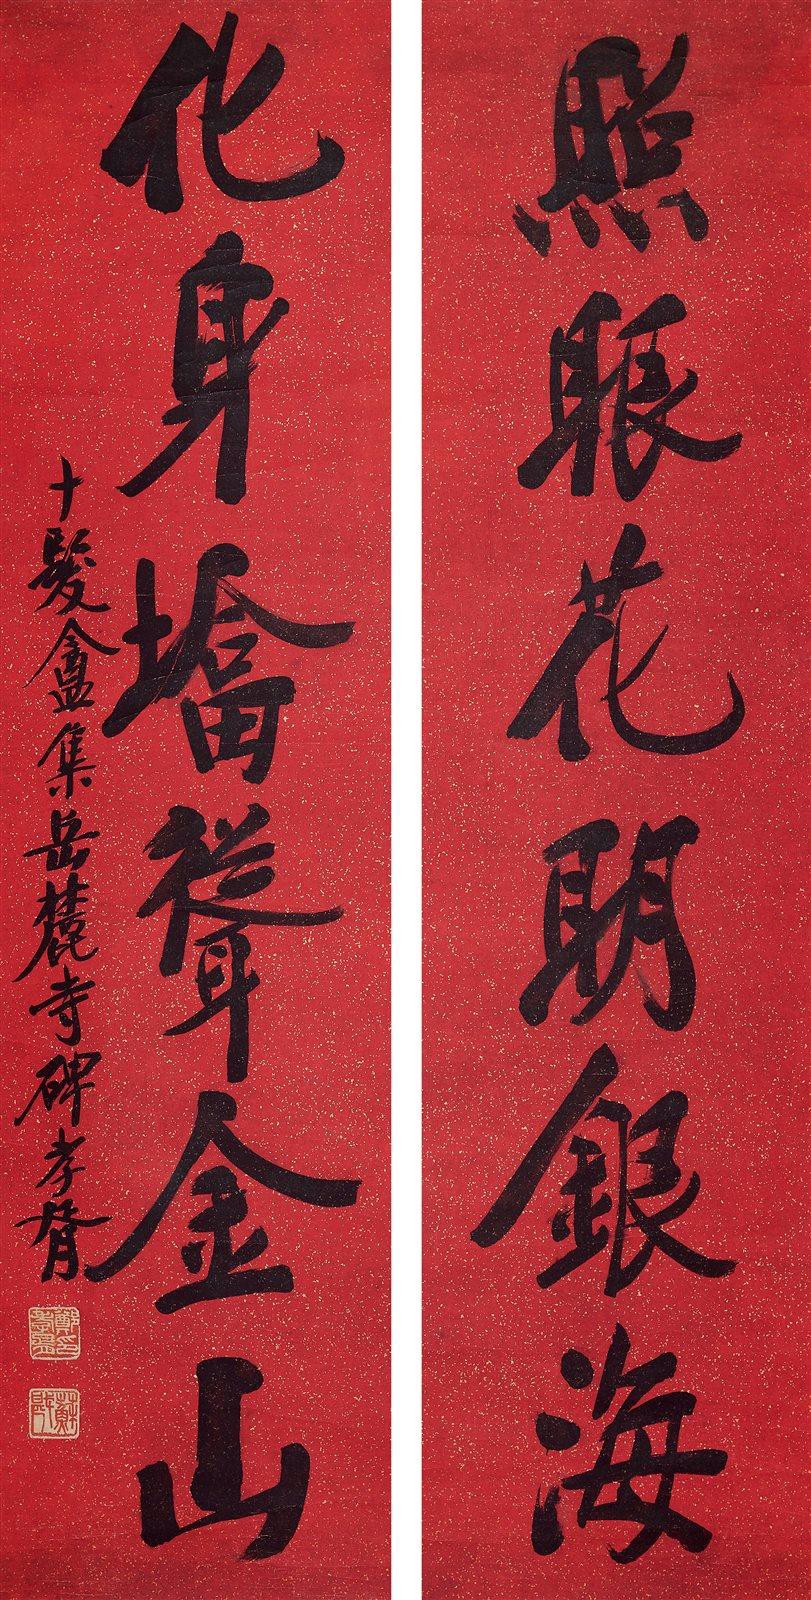 照眼花明銀海
化身墖聳金山
十髮盦集岳麓寺碑 孝胥
鄭孝胥印